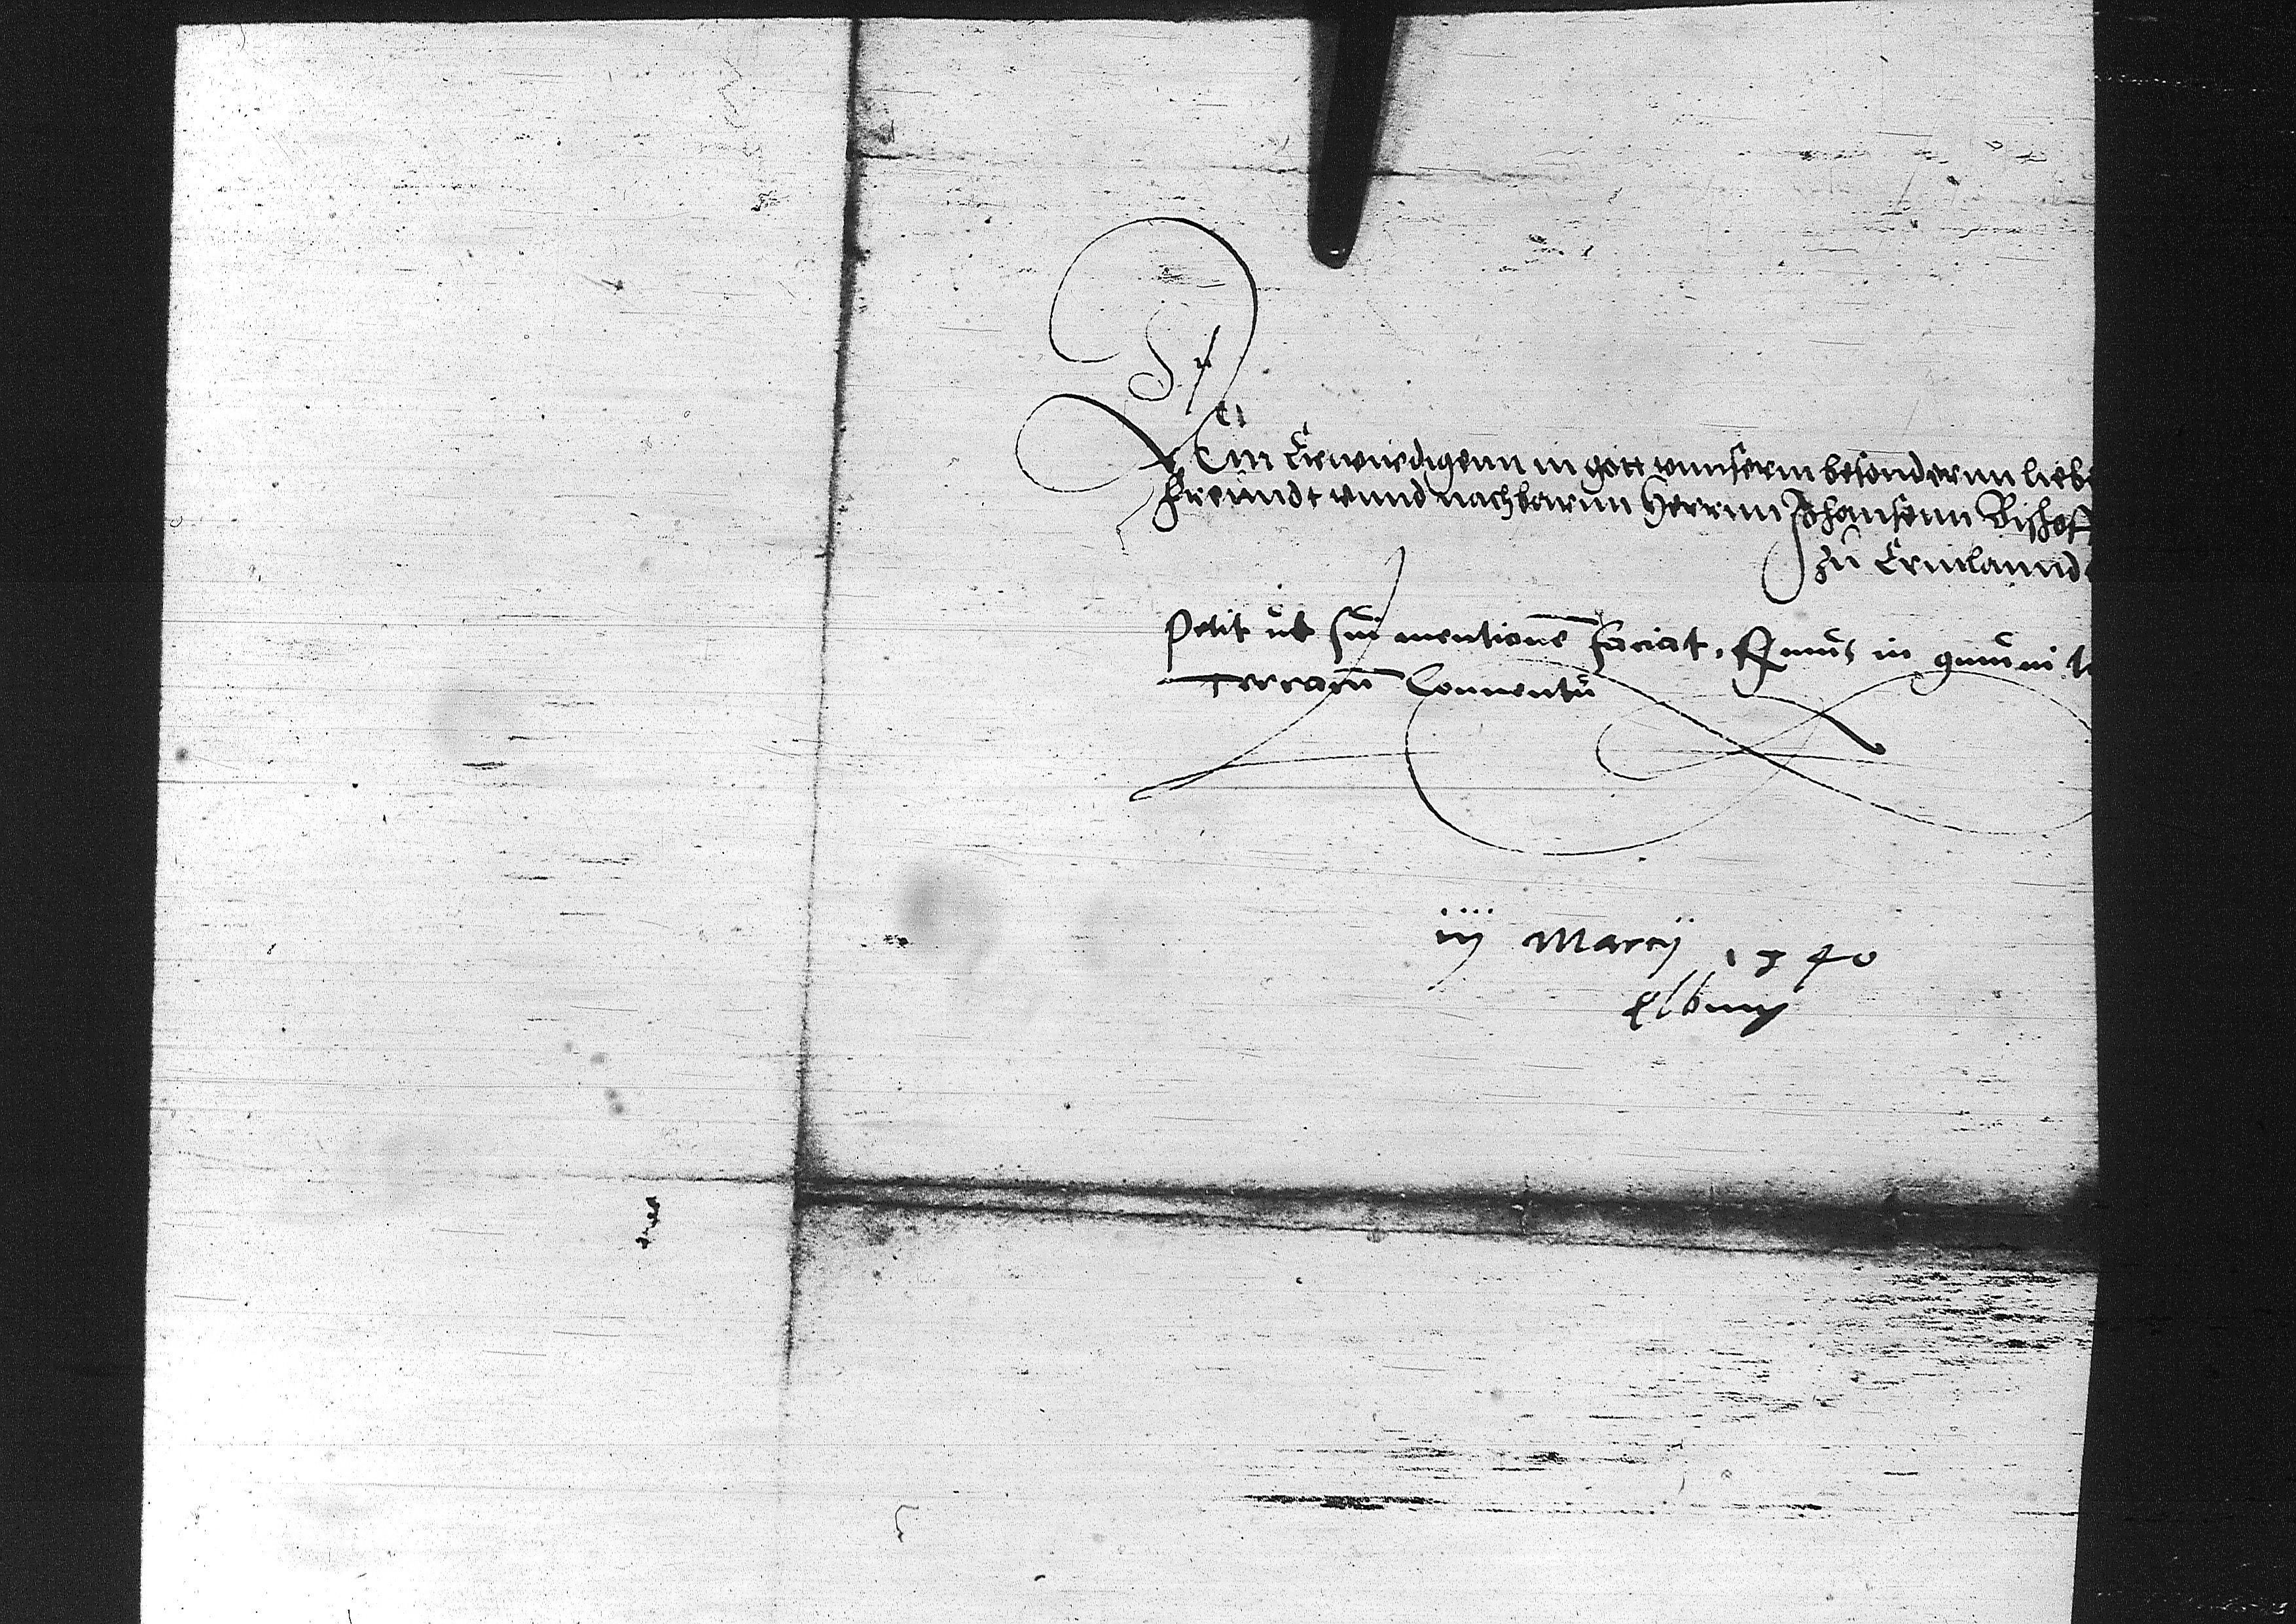 Dem Erwirdigenn in gott vnnserm besondernn lieb
freundt vnnd nachbarnn Herrnn Johansenn Bischof
zu Ermlannd
Petit ut sui mentionē faciat, R
terrarū Conuentu
iij Marcij 1540
Elbing